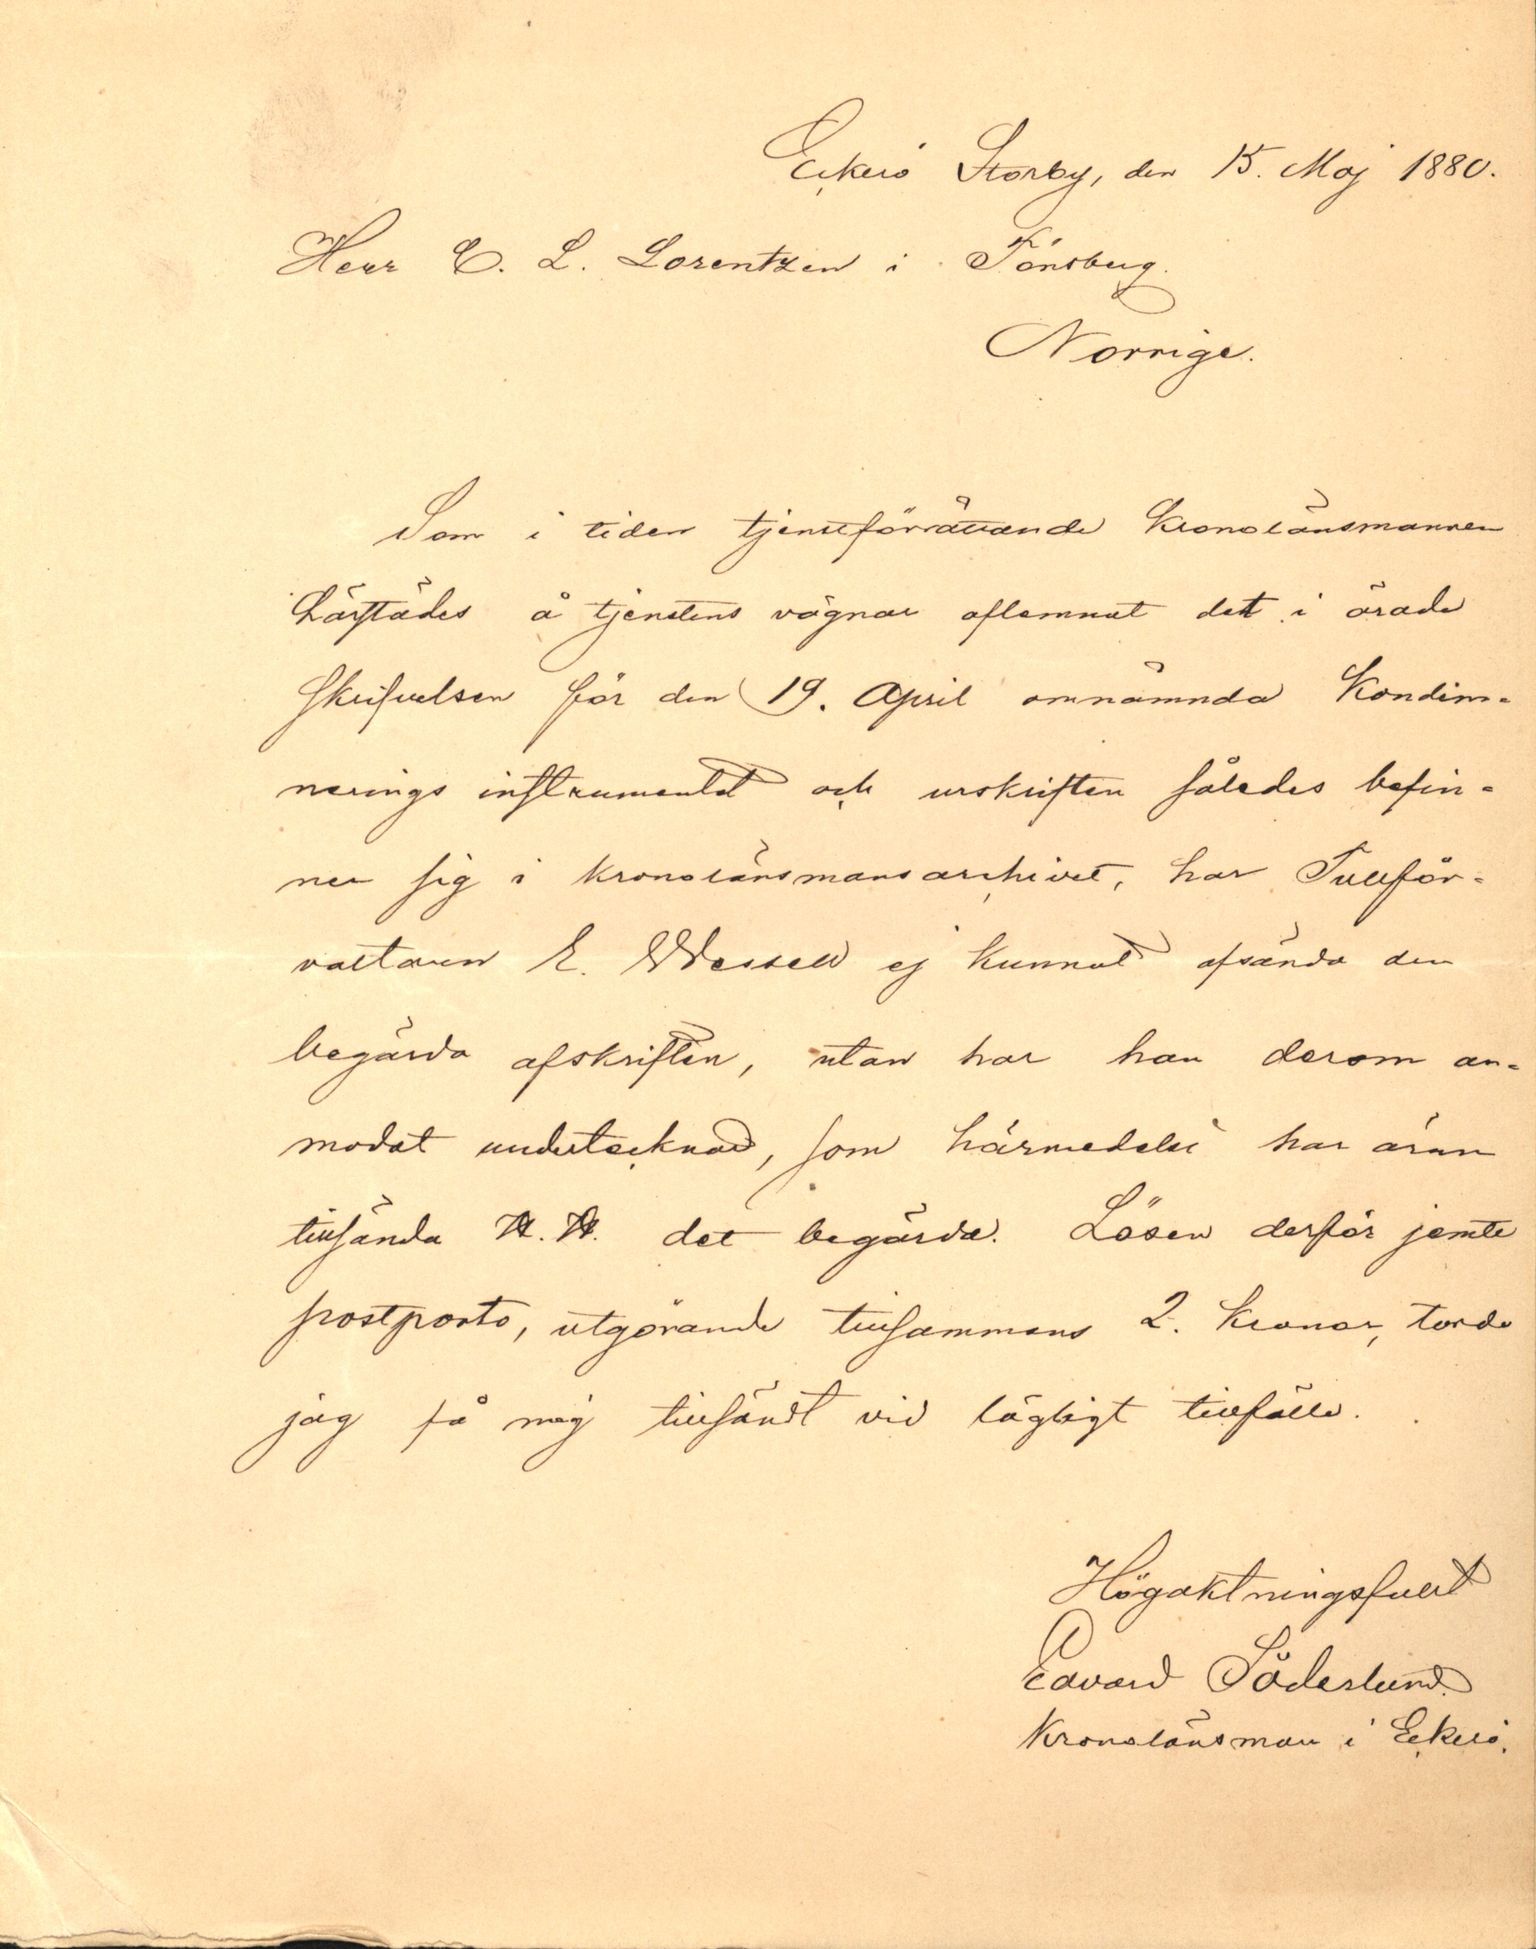 Eckerö Storby, den 15. Maj 1880.
Herr C. L. Lorentzen i Tönsberg.
Norrige.
Som i tiden tjenstförrättande Kronolänsmannen
härstädes å tjenstens vägnar aflemnat det i ärade
skrifvelsen för den 19. April omnämnda Kondem-
nerings instrumentet och urskriften således befin-
ner sig i kronolänsmansarchivet, har Tullför-
valtaren E. Wessell ej kunnat afsända den
begärda afskriften, utan har han derom an-
modat undertecknad, som härmedelst har äran
tillsända H. H. det begärda. Lösen derför jemte
postporto, utgörande tillsammans 2. kronor, torde
jag få mig tillsändt vid lägligt tillfälle.
Högaktningsfullt
Edvard Söderlund.
Kronolänsman i Eckerö.